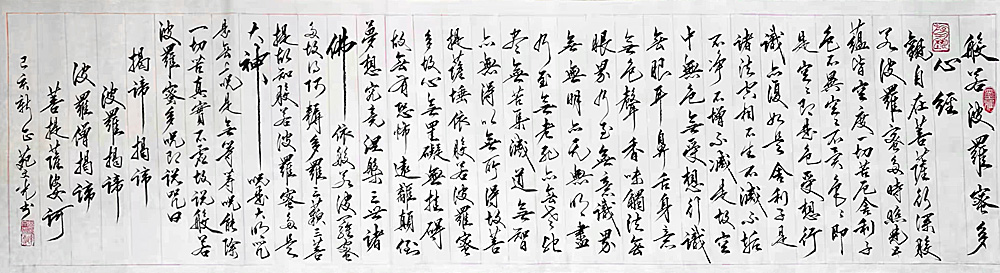 般若波羅蜜多
心經
觀自在菩薩行深般
若波羅蜜多時照見五
蘊皆空度一切苦厄舍利子
色不異空々不異色々即
是空々即是色受想行
識亦復如是舍利子是
諸法空相不生不滅不垢
不淨不增不減是故空
中無色無受想行識
無眼耳鼻舌身意
無色聲香味觸法無
眼界乃至無意識界
無無明亦無無明盡
乃至無老死亦無老死
盡無苦集滅道無智
亦無得以無所得故菩
提薩埵依般若波羅蜜
多故心無罣礙無掛礙
故無有恐怖遠離顛倒
夢想究竟涅槃三世諸
佛依般若波羅蜜
多故得阿耨多羅三藐三菩
提故知般若波羅蜜多是
大神咒是大明咒
是無上咒是無等等咒能除
一切苦真實不虛故說般若
波羅蜜多咒即說咒曰
揭諦揭諦
波羅揭諦
波羅僧揭諦
菩提薩婆訶
己亥新正 書